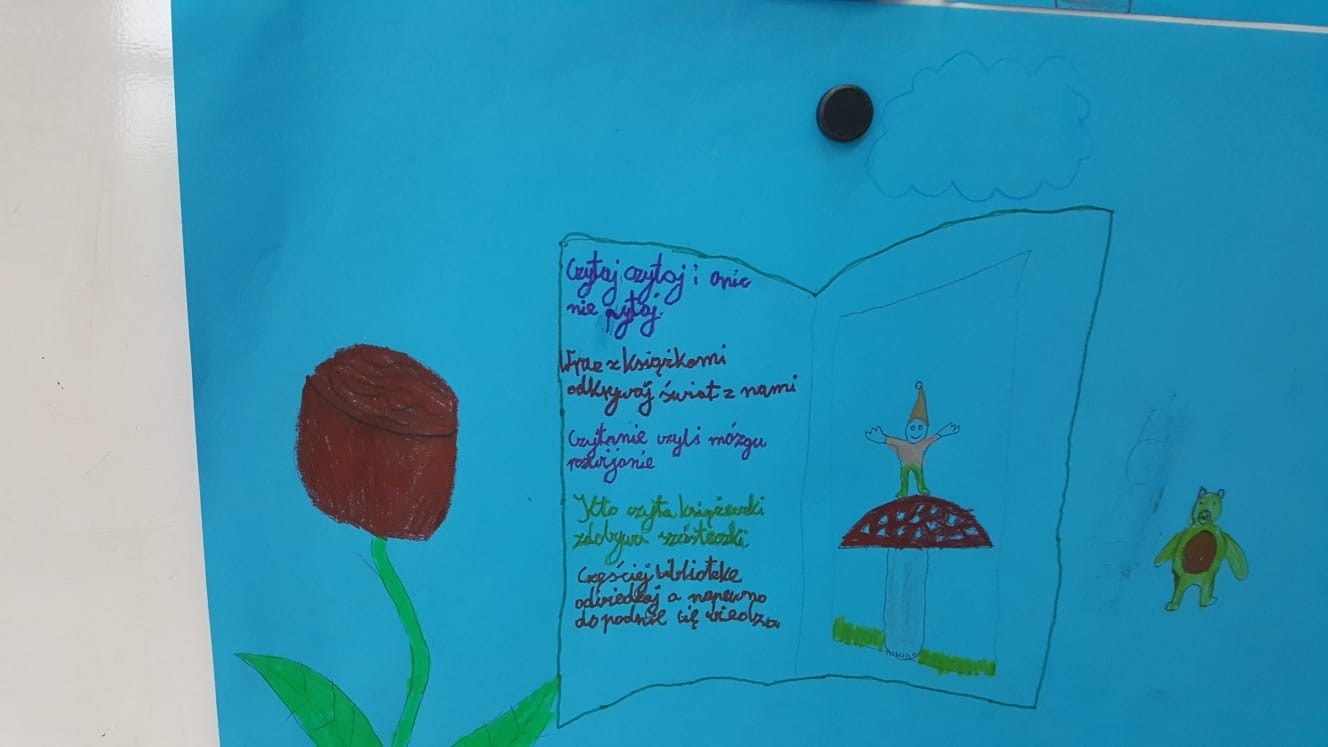 Czytaj, czytaj i o nic
nie pytaj.
Wraz z książkami
odkrywaj świat z nami
Czytanie czyli mózgu
rozwijanie
Kto czyta książeczki
zdobywa szósteczki
Częściej bibliotekę
odwiedzaj a napewno
do podnie się wiedza.